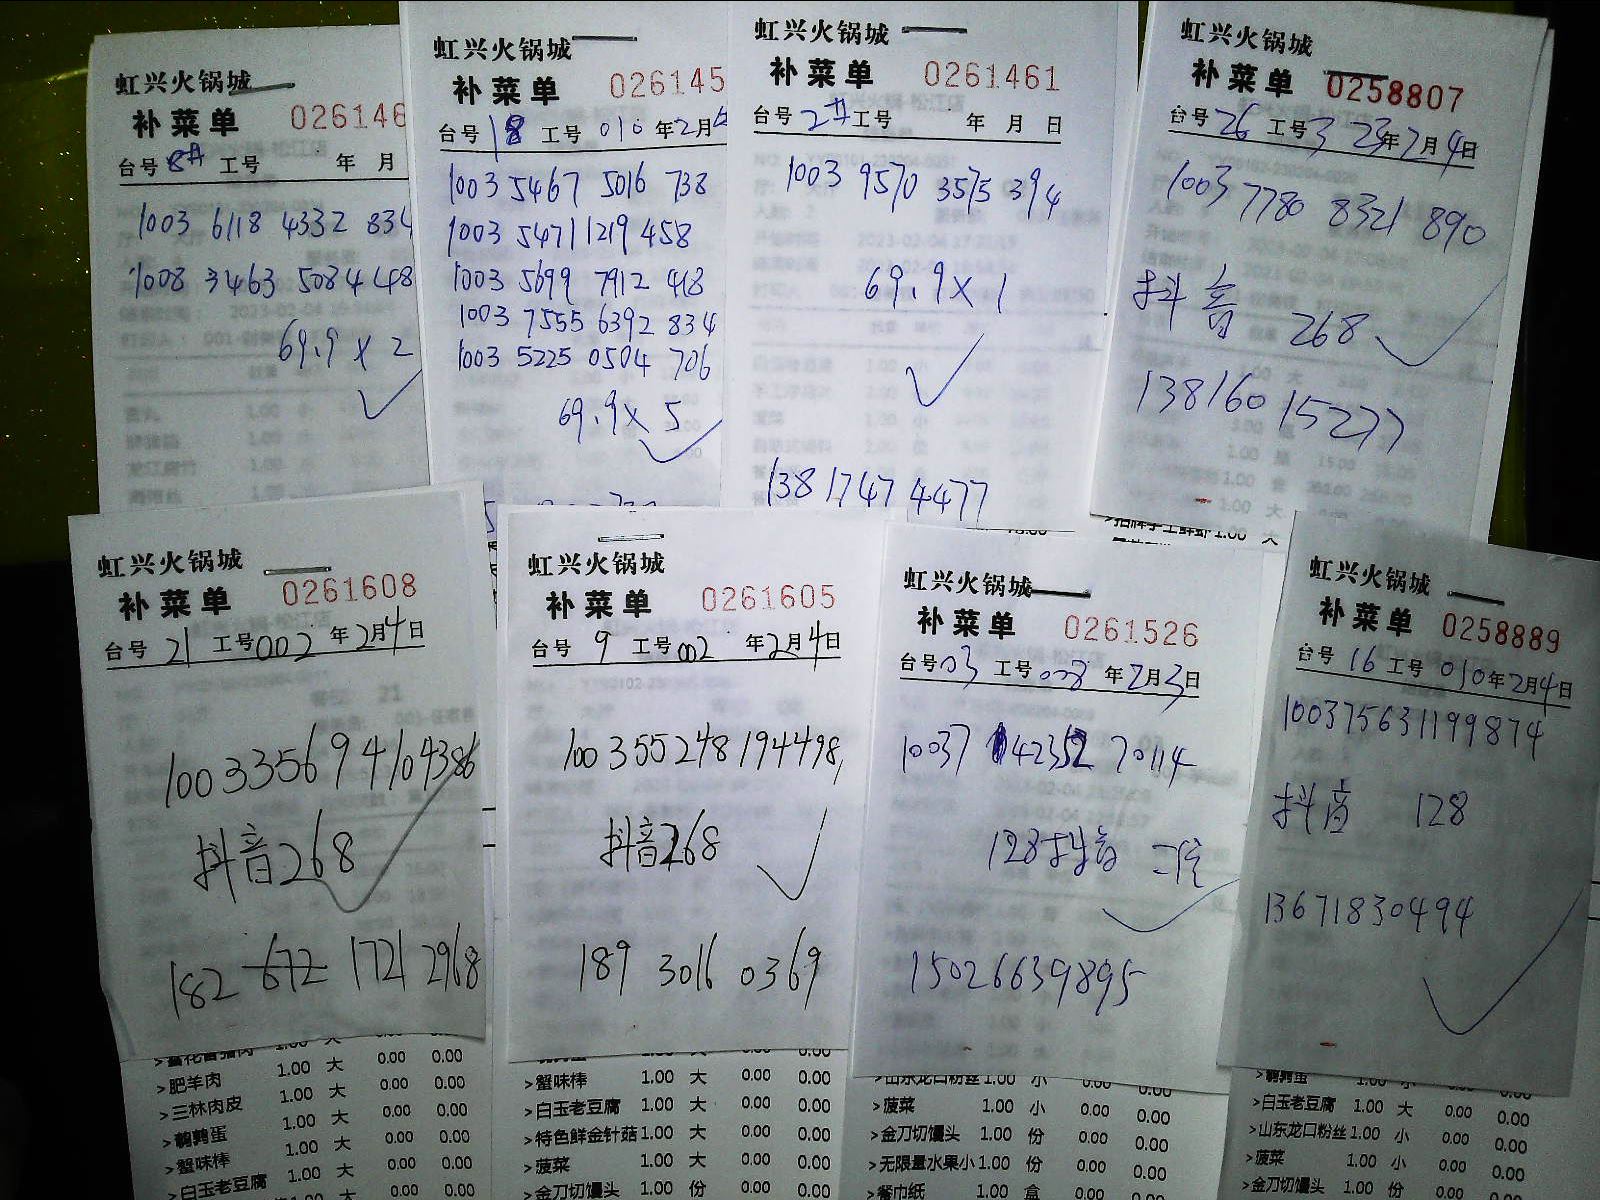 虹兴火锅城
补菜单 026146
台号 8# 工号 年 月
1003 6118 4332 834
1008 3463 5084 448
69.9 x 2
虹兴火锅城
补菜单 026145
台号 18 工号 010 年 2月
1003 5467 5016 738
1003 5471 1219 458
1003 5699 7912 418
1003 7555 6392 834
1003 5225 0504 706
69.9 x 5
虹兴火锅城
补菜单 0261461
台号 2# 工号 年 月 日
1003 9570 3575 394
69.9 x 1
138 1747 4477
虹兴火锅城
补菜单 0258807
台号 26 工号 3 23年2月4日
1003 7780 8321 890
抖音 268
138160 15277
虹兴火锅城
补菜单 0261608
台号 21 工号 002 年 2月4日
100335694104386
抖音268
182 672 1721 2968
>肥羊肉 1.00 大 0.00 0.00
>三林肉皮 1.00 大 0.00 0.00
>鹌鹑蛋 1.00 大 0.00 0.00
>蟹味棒 1.00 大 0.00 0.00
>白玉老豆腐 1.00 大 0.00 0.00
虹兴火锅城
补菜单 0261605
台号 9 工号 002 年 2月4日
100355248194498
抖音268
189 3016 0369
>蟹味棒 1.00 大 0.00 0.00
>白玉老豆腐 1.00 大 0.00 0.00
>特色鲜金针菇 1.00 大 0.00 0.00
>菠菜 1.00 大 0.00 0.00
>金刀切馒头 1.00 份 0.00 0.00
虹兴火锅城
补菜单 0261526
台号 03 工号 008 年 2月3日
10037 42352 70114
128抖音 二位
15026639895
>山东龙口粉丝 1.00 小 0.00 0.00
>菠菜 1.00 小 0.00 0.00
>金刀切馒头 1.00 份 0.00 0.00
>无限量水果小 1.00 份 0.00 0.00
>餐巾纸 1.00 盒 0.00 0.00
虹兴火锅城
补菜单 0258889
台号 16 工号 010 年2月4日
100375631199874
抖音 128
13671830494
>鹌鹑蛋 1.00 小 0.00 0.00
>白玉老豆腐 1.00 大 0.00 0.00
>山东龙口粉丝 1.00 小 0.00 0.00
>菠菜 1.00 小 0.00 0.00
>金刀切馒头 1.00 份 0.00 0.00